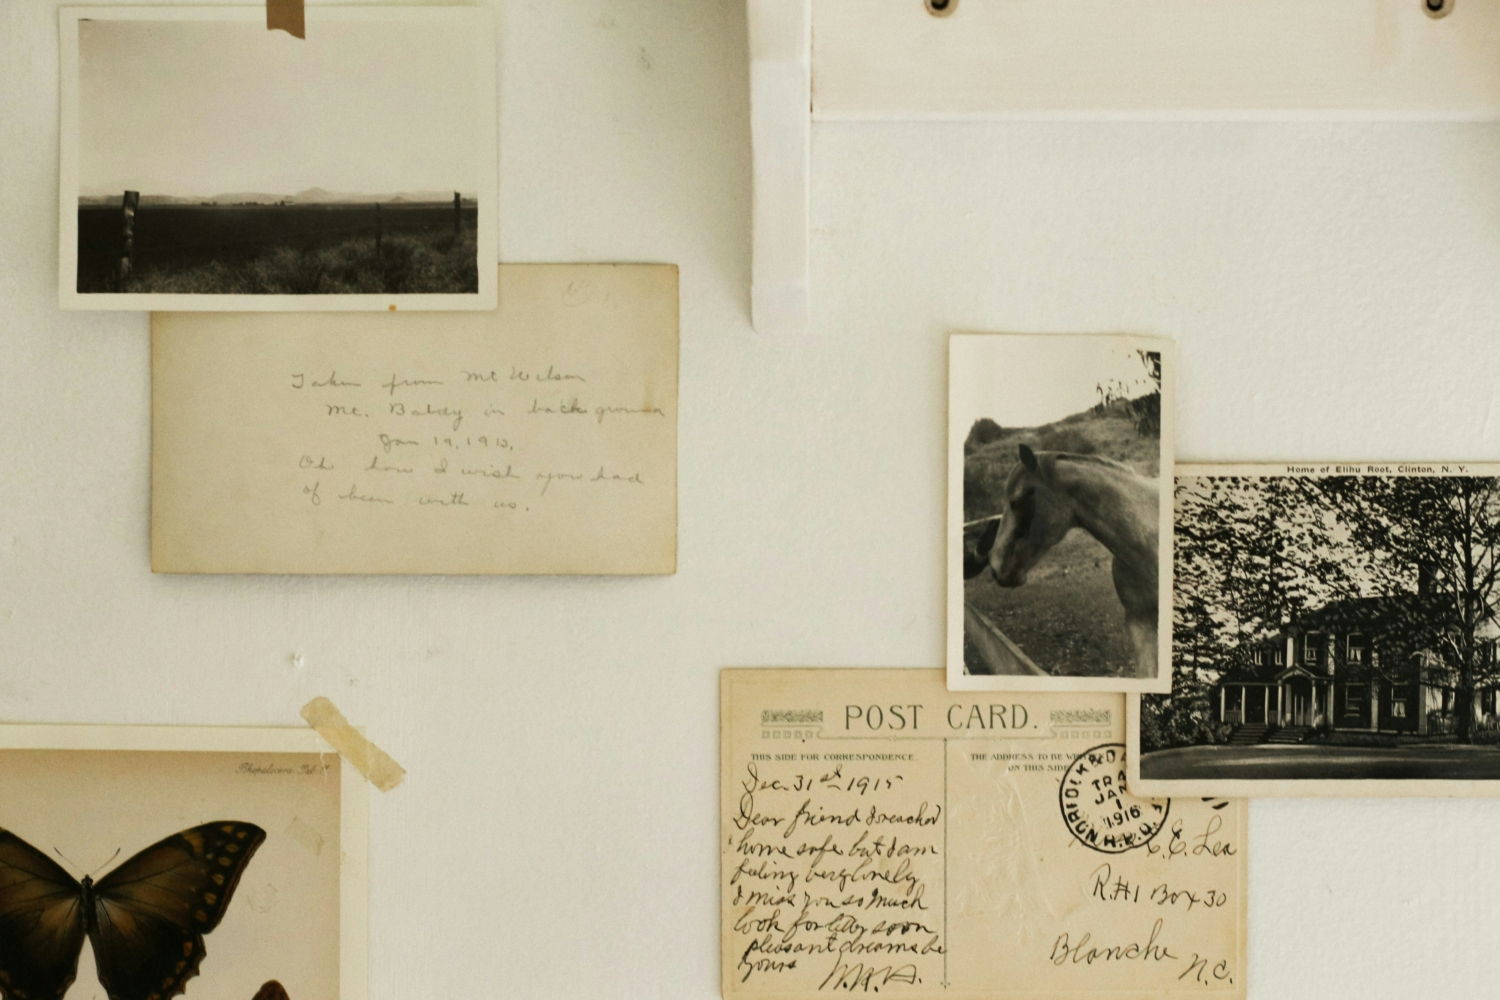 Taken from Mt Wilson
Mt. Baldy in background
Jan 19, 1913.
Oh how I wish you had
of been with us.
Home of Elihu Root, Clinton, N. Y.
POST CARD.
THIS SIDE FOR CORRESPONDENCE.
THE ADDRESS TO BE
ON THIS SIDE
Dec. 31st 1915
Dear friend I reached
home safe but I am
feeling very lonely
I miss you so much
look for letter soon
pleasant dreams be
yours W.R.A.
JAN
1
1916
C.E. Lea
R.#1 Box 30
Blanche
N.C.